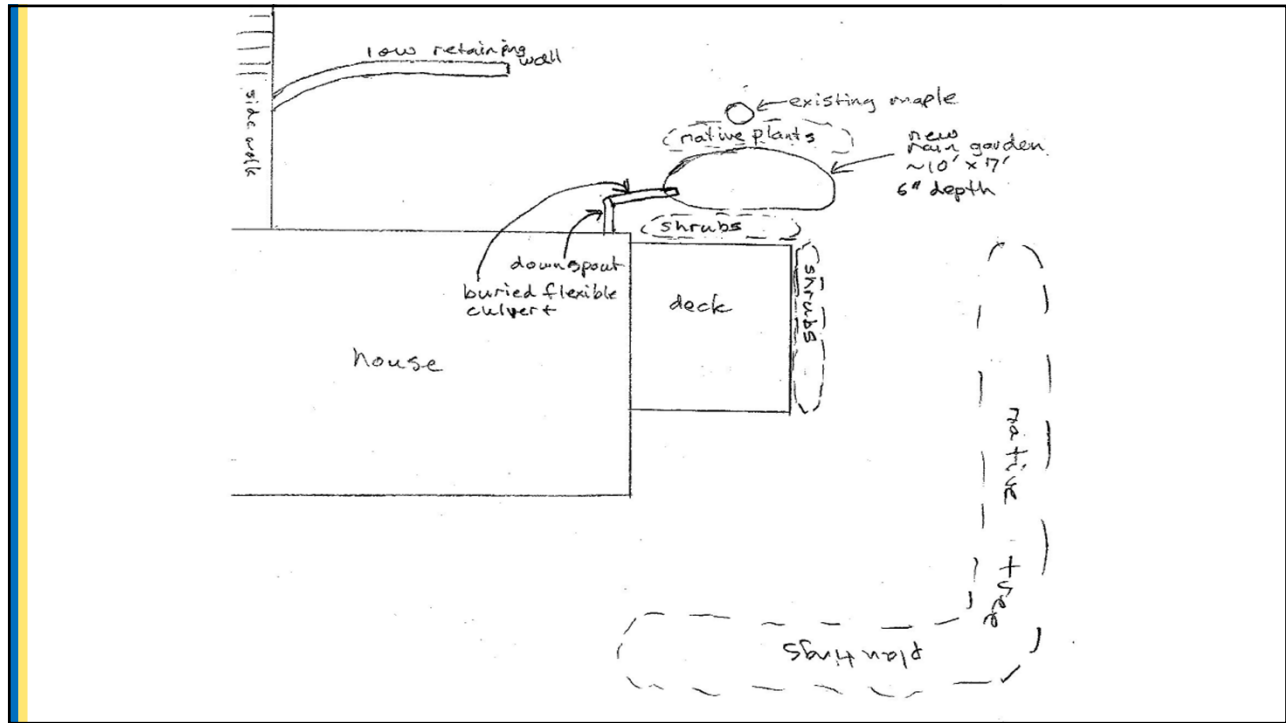 low retaining
wall
side walk
existing maple
native plants
new
rain garden
~10' x 17'
6" depth
shrubs
downspout
buried flexible
culvert
deck
shrubs
house
native tree
plantings